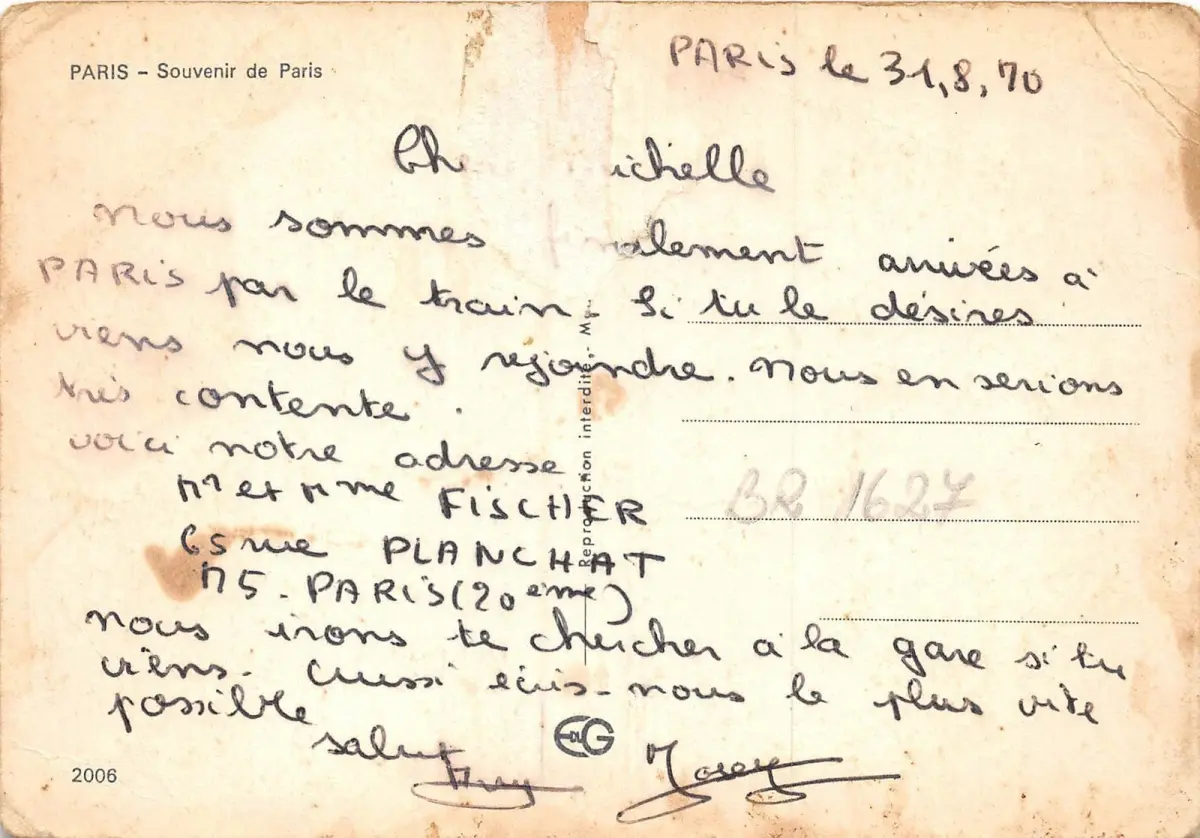 PARIS - Souvenir de Paris
PARIS le 31,8,70
Ch ichelle
nous sommes finalement arrivées à
PARIS par le train. Si tu le désires
viens nous y rejoindre. nous en serions
très contente.
voici notre adresse
Mr et Mme FISCHER
65 rue PLANCHAT
75. PARIS (20ème)
nous irons te chercher à la gare si tu
viens. Aussi écris-nous le plus vite
possible
salut
Reproduction interdite
BR 1627
EDUG
2006